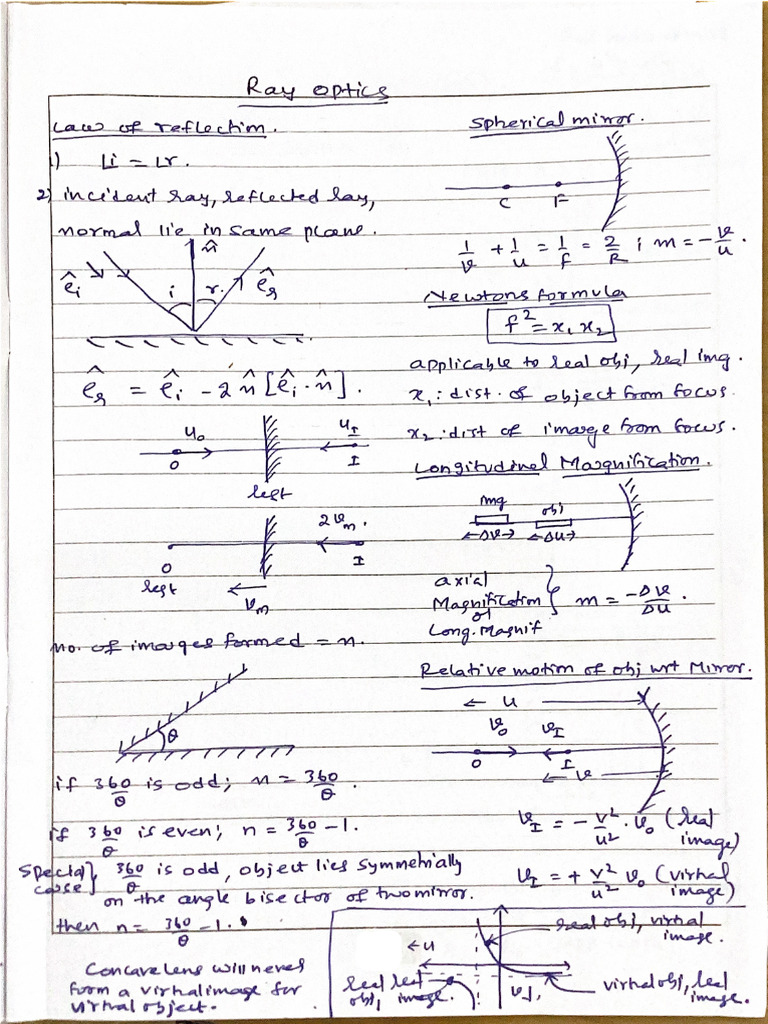 Ray optics
Law of reflection.
1) Li = Lr.
2) incident ray, reflected ray,
normal lie in same plane.
n̂
êi
i
r
êr
êr = êi - 2 n̂ [êi · n̂].
u0
uI
O
I
rest
2vm.
O
I
rest
vm
no. of images formed = n.
θ
if 360/θ is odd; n = 360/θ.
if 360/θ is even; n = 360/θ - 1.
Special case} 360/θ is odd, object lies symmetrially
on the angle bisector of two mirror.
then n = 360/θ - 1.
Concave lens will never
form a virtual image for
virtual object.
Spherical mirror.
C
F
1/v + 1/u = 1/f = 2/R ; m = -v/u.
Newtons formula
f² = x1 x2
applicable to real obj, real img.
x1: dist. of object from focus.
x2: dist of image from focus.
Longitudinal Magnification.
img
obj
Δv
Δu
axial
Magnification
or
Long. Magnif
} m = -Δv/Δu.
Relative motion of obj wrt Mirror.
u
v0
vI
O
I
v
vI = - v²/u² · v0 (real
image)
vI = + v²/u² v0 (virtual
image)
u
real obj, virtual
image.
real obj, real image.
v↓,
virtual obj, real
image.